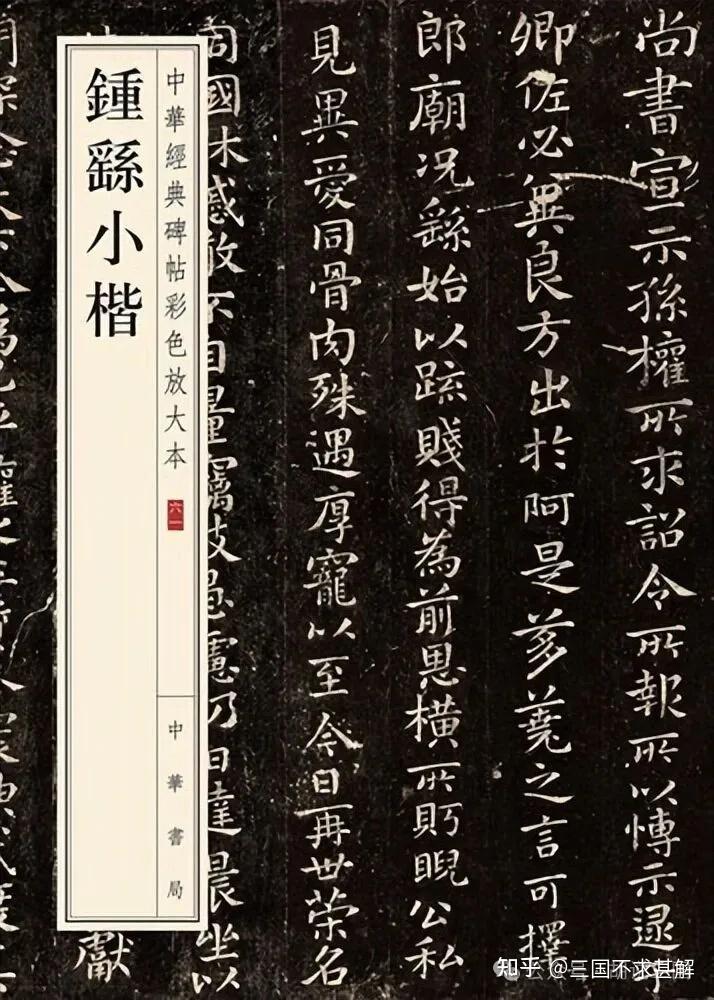 尚書宣示孫權所求詔令所報所以愽示逮于
卿佐必冀良方出於阿是芻蕘之言可擇
郎廟況繇始以疏賤得為前恩橫所眄睨公私
見異愛同骨肉殊遇厚寵以至今日再世榮名
同國休慼敢不自量竊致愚慮乃日達晨坐以
獻
中華經典碑帖彩色放大本
六一
鍾繇小楷
中華書局
知乎 @三国不求甚解